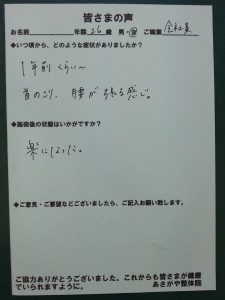 皆さまの声
お名前 年齢 26 歳 男・女 ご職業 会社員
◆いつ頃から、どのような症状がありましたか?
1年前くらい~
首のこり、腰が張る感じ。
◆施術後の状態はいかがですか?
楽になった。
◆ご意見・ご要望などございましたら、ご記入お願い致します。
ご協力ありがとうございました。これからも皆さまが健康
でいられますように。 あさがや整体院